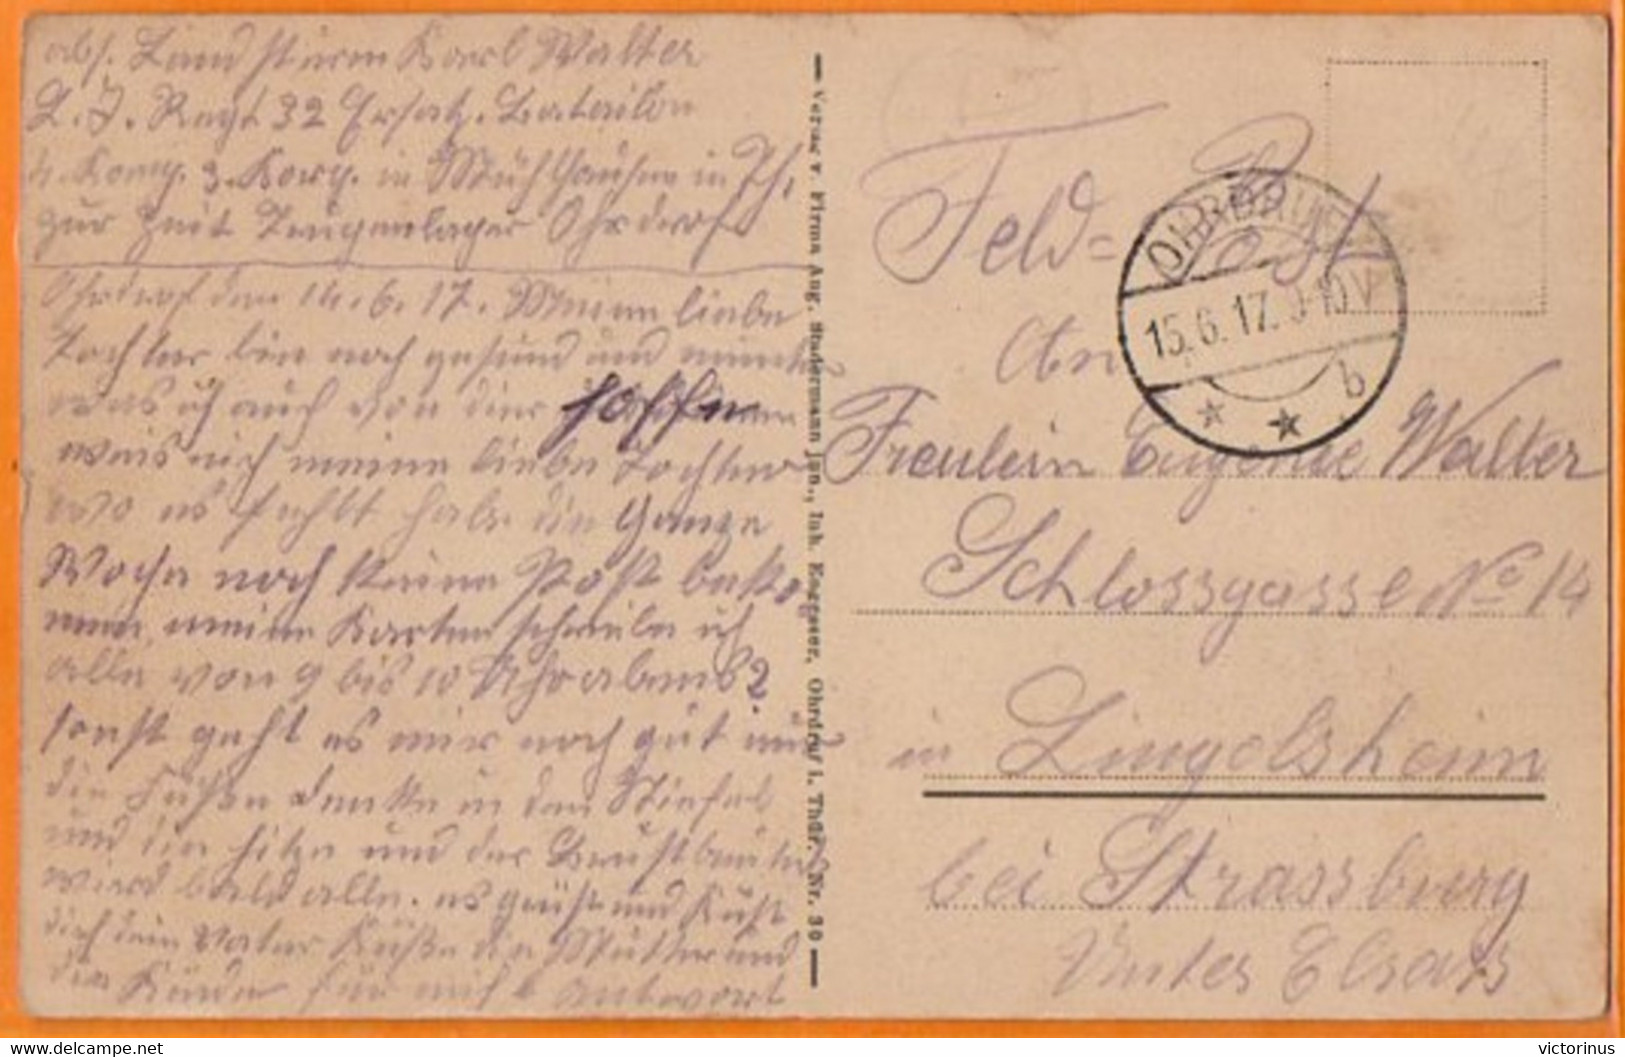 abs. Landsturm Karl Walter
L. J. Regt 32 Ersatz. Batailon
4. Komp. 3. Korp. in Mühlhausen in Th.
zur Zeit Ohrdruf
Ohrdruf den 14. 6. 17. Meine liebe
Tochter bin noch gesund und munter
was ich auch von dier hoffen
weis nich meine liebe Tochter
wo es fehlt habe die Ganze
Woche noch keine Post beko
men meine Karten schreibe ich
alle von 9 bis 10 Uhr abends
sonst geht es mir noch gut nur
die Füße in den Stiefel
und die hitze und der Brustbeutel
wird bald alle. es grüst und Küst
dich dein Vater Küße die Mutter und
die Kinder für mich Antwort
Verlag v. Firma Aug. Stadermann jun., Inh. Ohrdruf i. Thür. Nr. 30
Feld=Post
OHRDRUF
15.6.17. 9-10 V
b
An
Freulein Eugenie Walter
Schlossgasse No 14
in Lingolsheim
bei Strassburg
Unter Elsass
delcampe.net
victorinus